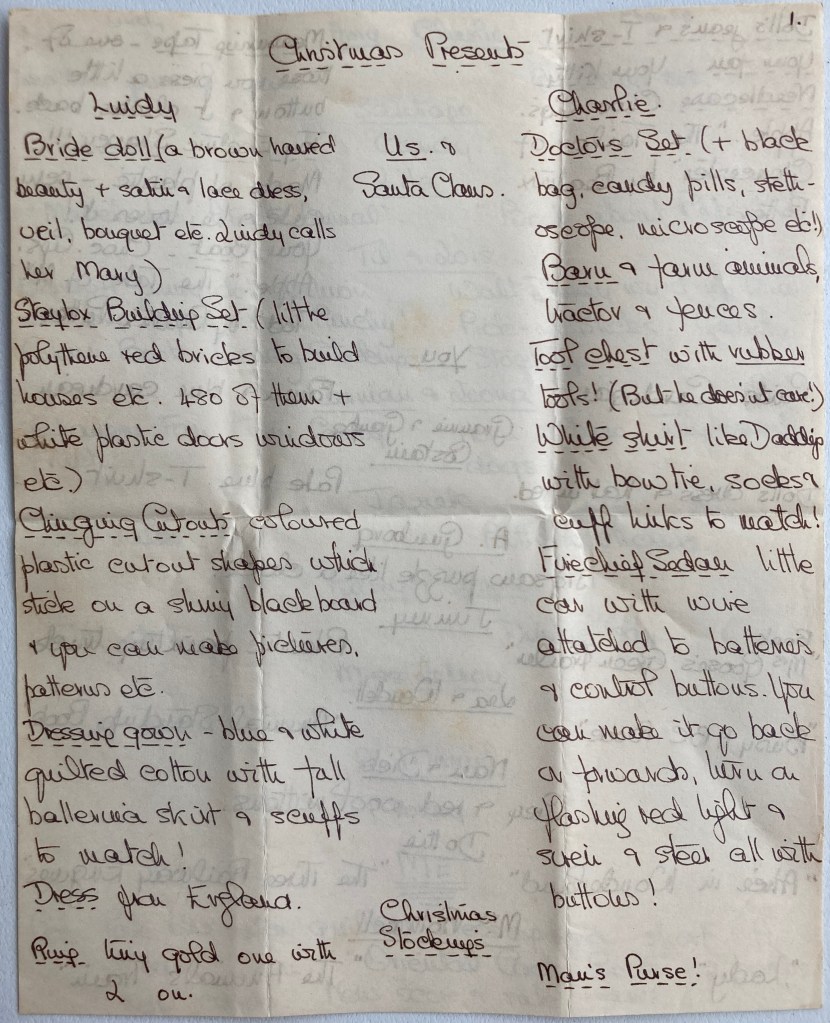 1.
Christmas Presents
Lindy
Bride doll (a brown haired
beauty + satin & lace dress,
veil, bouquet etc. Lindy calls
her Mary)
Staylox Building Set (little
polythene red bricks to build
houses etc. 480 of them +
white plastic doors windows
etc.)
Clinging Cutouts, coloured
plastic cutout shapes which
stick on a shiny blackboard
& you can make pictures,
patterns etc.
Dressing gown - blue & white
quilted cotton with full
ballerina skirt & scuffs
to match!
Dress from England.
Ring tiny gold one with
L on.
Us. &
Santa Claus.
Christmas
Stockings
Charlie.
Doctors Set (+ black
bag, candy pills, steth-
oscope, microscope etc!)
Barn & farm animals,
tractor & fences.
Tool chest with rubber
tools! (But he does'nt care!)
White shirt like Daddys
with bowtie, socks &
cuff links to match!
Firechief Sedan little
car with wire
attatched to batteries
& control buttons. You
can make it go back
or forwards, turn on
flashing red light &
siren & steer all with
buttons!
Man's Purse!